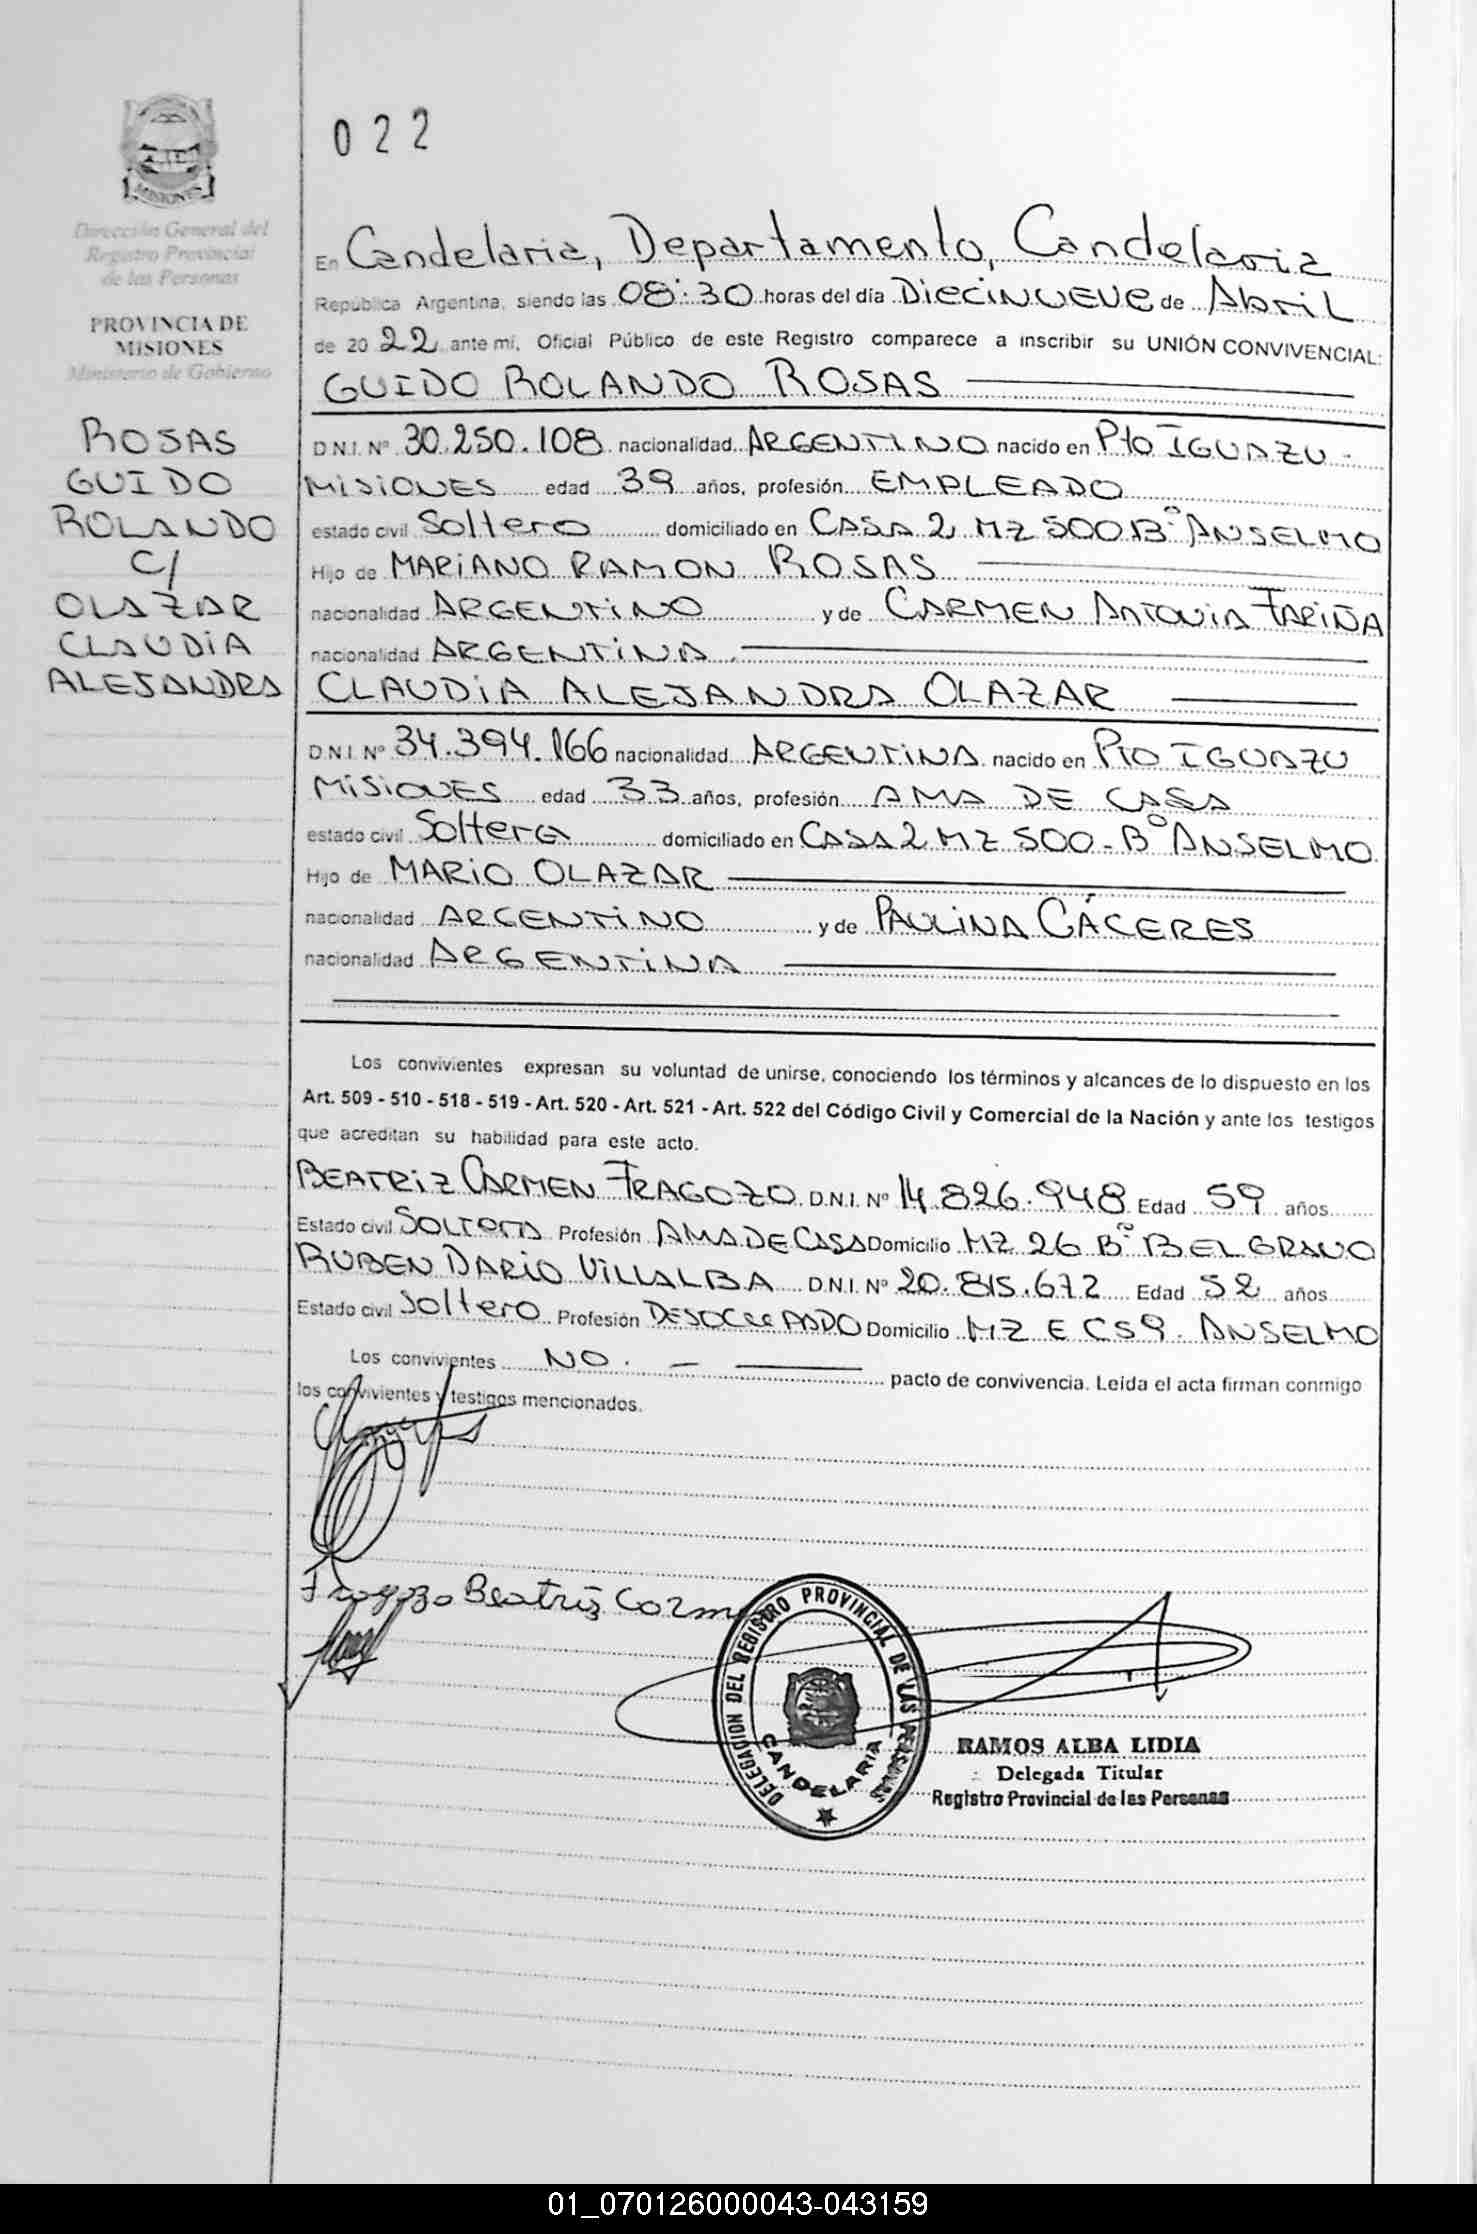 MISIONES
Dirección General del
Registro Provincial
de las Personas
PROVINCIA DE
MISIONES
Ministerio de Gobierno
ROSAS
GUIDO
ROLANDO
C/
OLAZAR
CLAUDIA
ALEJANDRA
022
En Candelaria, Departamento, Candelaria
República Argentina, siendo las 08:30 horas del día Diecinueve de Abril
de 2022 ante mí, Oficial Público de este Registro comparece a inscribir su UNIÓN CONVIVENCIAL:
GUIDO ROLANDO ROSAS
D.N.I. Nº 30.250.108 nacionalidad ARGENTINO nacido en Pto IGUAZU -
MISIONES edad 39 años, profesión EMPLEADO
estado civil Soltero domiciliado en CASA 2 MZ 500 Bº ANSELMO
Hijo de MARIANO RAMON ROSAS
nacionalidad ARGENTINO y de CARMEN ANTONIA FARIÑA
nacionalidad ARGENTINA
CLAUDIA ALEJANDRA OLAZAR
D.N.I. Nº 34.394.166 nacionalidad ARGENTINA nacido en Pto IGUAZU
MISIONES edad 33 años, profesión AMA DE CASA
estado civil Soltera domiciliado en CASA 2 MZ 500 - Bº ANSELMO
Hijo de MARIO OLAZAR
nacionalidad ARGENTINO y de PAULINA CÁCERES
nacionalidad ARGENTINA
Los convivientes expresan su voluntad de unirse, conociendo los términos y alcances de lo dispuesto en los
Art. 509 - 510 - 518 - 519 - Art. 520 - Art. 521 - Art. 522 del Código Civil y Comercial de la Nación y ante los testigos
que acreditan su habilidad para este acto.
BEATRIZ CARMEN FRAGOZO D.N.I. Nº 14.826.948 Edad 59 años
Estado civil SOLTERA Profesión AMA DE CASA Domicilio MZ 26 Bº BELGRANO
RUBEN DARIO VILLALBA D.N.I. Nº 20.815.672 Edad 52 años
Estado civil Soltero Profesión DESOCUPADO Domicilio MZ E CS 9 ANSELMO
Los convivientes NO. pacto de convivencia. Leída el acta firman conmigo
los convivientes y testigos mencionados.
Fragozo Beatriz
DELEGACION DEL REGISTRO PROVINCIAL DE LAS PERSONAS
CANDELARIA
RAMOS ALBA LIDIA
Delegada Titular
Registro Provincial de las Personas
01_070126000043-043159